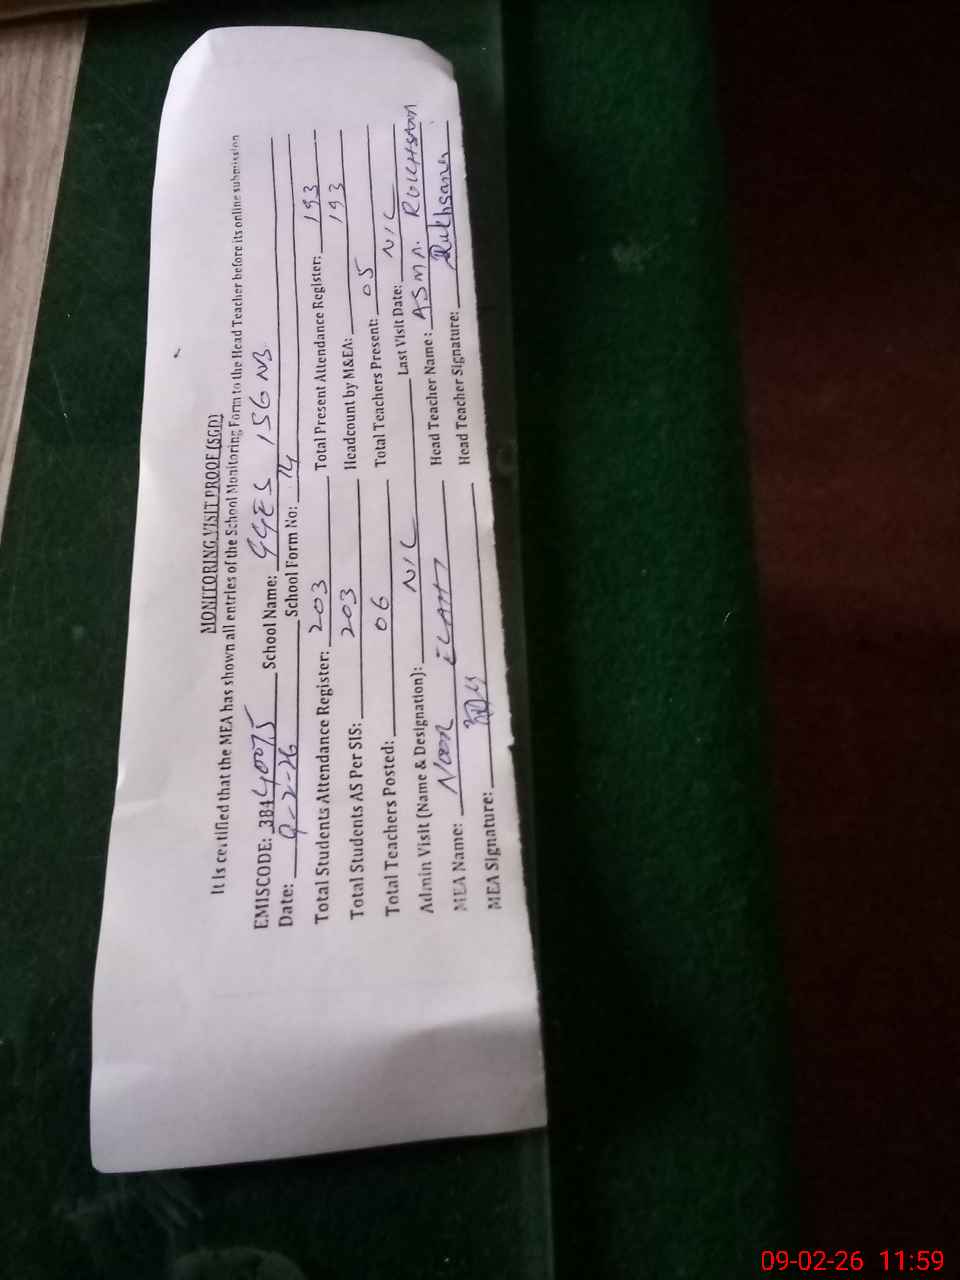 MONITORING VISIT PROOF (SGD)
It is certified that the MEA has shown all entries of the School Monitoring Form to the Head Teacher before its online submission
EMISCODE: 38440075 School Name: GGES 15G NB
Date: 9-2-26 School Form No: 74
Total Students Attendance Register: 203 Total Present Attendance Register: 193
Total Students AS Per SIS: 203 Headcount by M&EA: 193
Total Teachers Posted: 06 Total Teachers Present: 05
Admin Visit (Name & Designation): NIL Last Visit Date: NIL
MEA Name: NOOR ELAHI Head Teacher Name: ASMA RUKHSANA
MEA Signature: Head Teacher Signature: Rukhsana
09-02-26 11:59